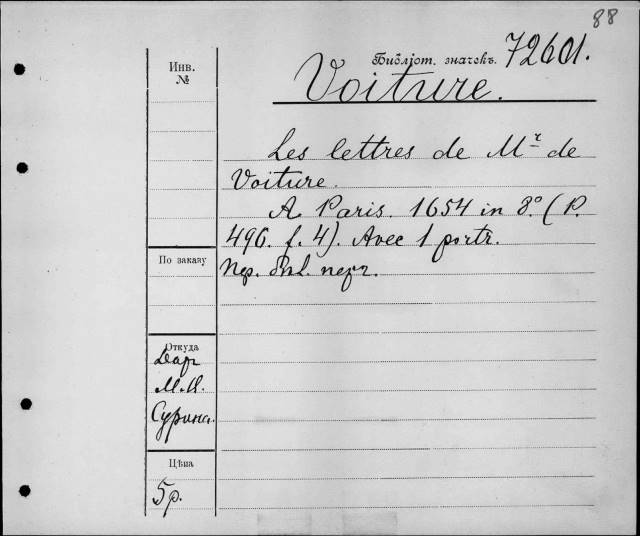 88
Библіот. значекъ. 72601.
Voiture.
Инв.
№
Les lettres de Mr de
Voiture.
A Paris. 1654 in 8º (P.
496. f. 4). Avec 1 portr.
По заказу
Откуда
Даръ
М. А.
Сурина.
Цѣна
5 р.